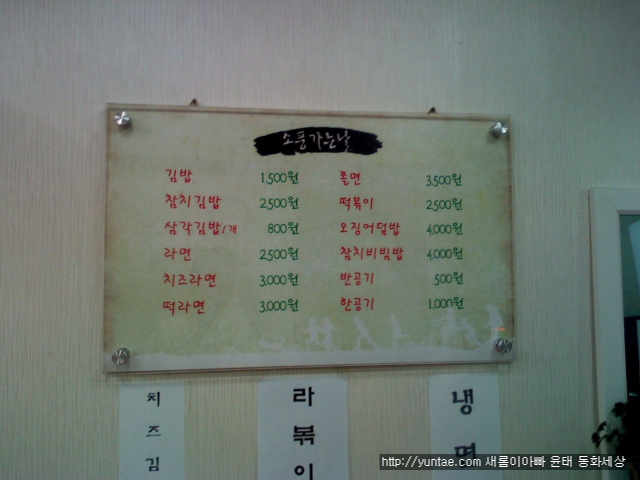 소풍가는날
김밥 1,500원
참치김밥 2,500원
삼각김밥/개 800원
라면 2,500원
치즈라면 3,000원
떡라면 3,000원
쫄면 3,500원
떡볶이 2,500원
오징어덮밥 4,000원
참치비빔밥 4,000원
반공기 500원
한공기 1,000원
치즈김
라볶이
냉면
http://yuntae.com 새롬이아빠 윤태 동화세상